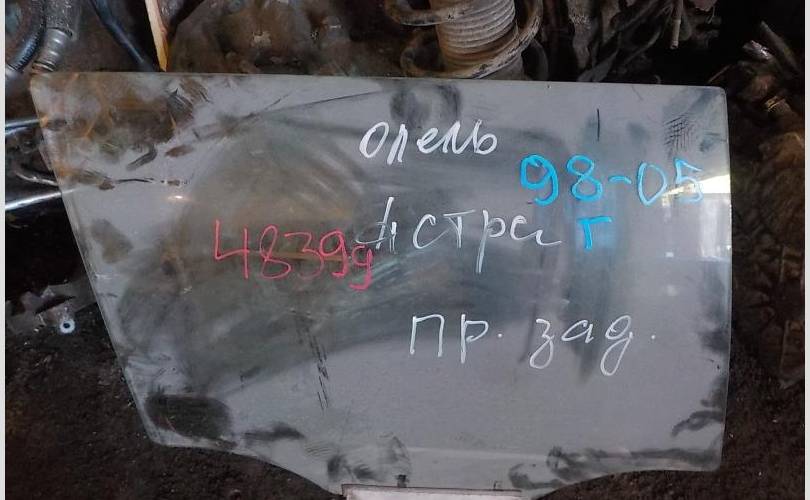 опель
98-05
Астра Г
48399
пр. зад.